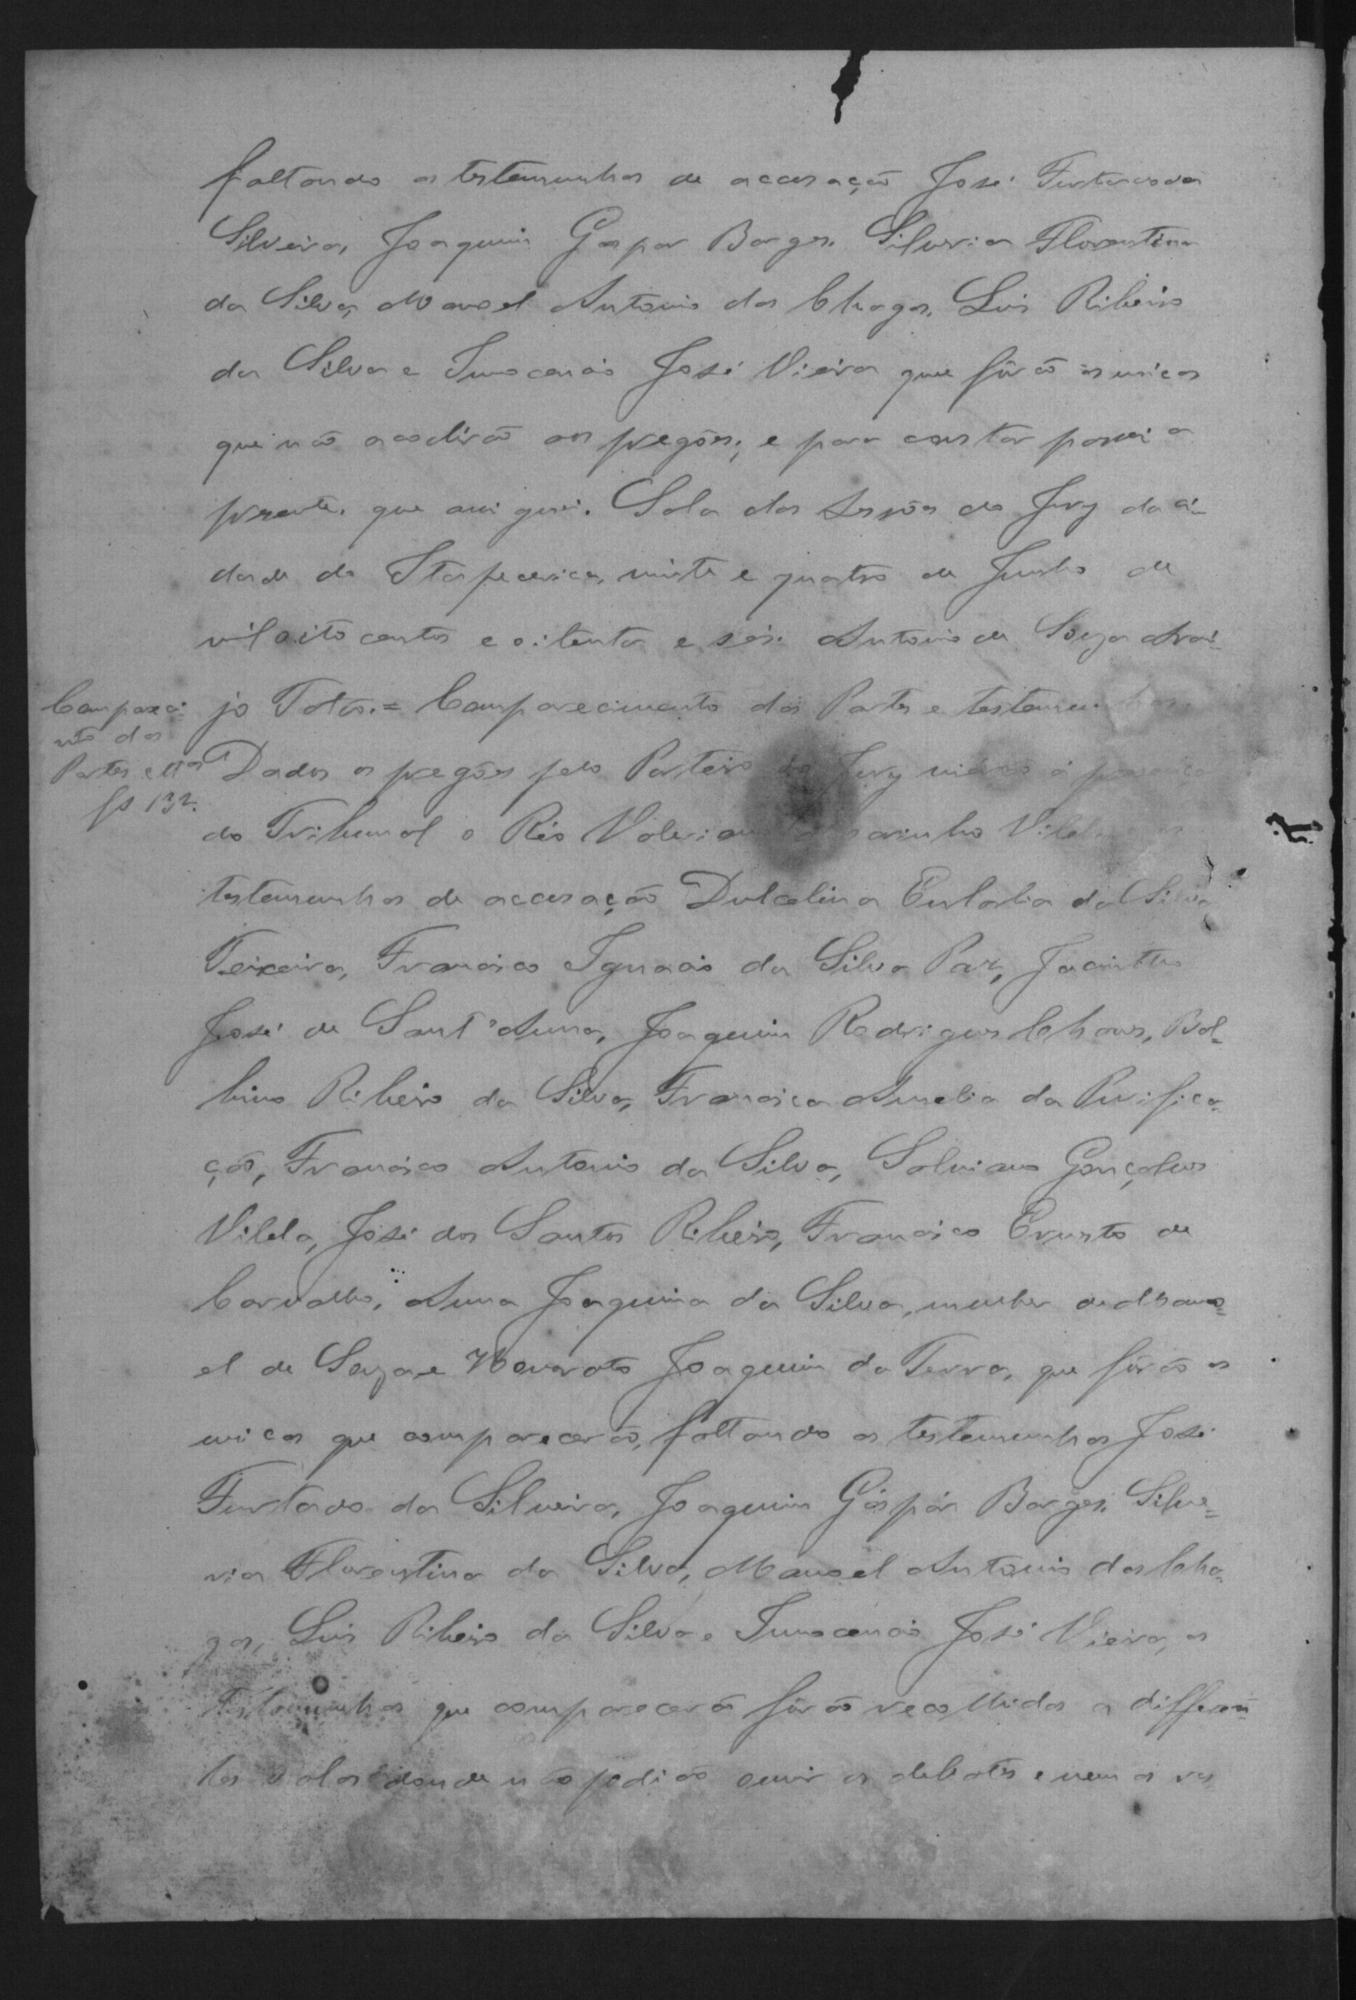 faltando as testemunhas de accusação José Furtado da
Silveira, Joaquim Gaspar Borges, Silveria Florentina
da Silva, Manoel Antonio das Chagas, Luis Ribeiro
da Silva e Innocencio José Vieira que fôrão as unicas
que não acodirão aos pregões; e para constar passei a
presente, que assignei. Sala das Sessões do Jury da ci-
dade de Itapecerica, vinte e quatro de Junho de
mil oito centos e oitenta e seis. Antonio de Souza Arau-
jo Totó. = Comparecimento das Partes e testemunhas.
Compareci-
mto das
Partes e ttas
fs 132.
Dados os pregões pelo Porteiro do Jury vierão á presença
do Tribunal o Réo Valeriano Marinho Vilela
testemunhas de accusação Dulcelina Eulalia da Silva
Teixeira, Francisco Ignacio da Silva Paz, Jacintho
José de Sant'Anna, Joaquim Rodrigues Chaves, Bal-
bino Ribeiro da Silva, Francisca Amelia da Purifica-
ção, Francisco Antonio da Silva, Salviano Gonçalves
Vilela, José dos Santos Ribeiro, Francisco Evaristo de
Carvalho, Anna Joaquina da Silva, mulher de Mano-
el de Souza e Honorato Joaquim da Terra, que fôrão as
unicas que comparecerão, faltando as testemunhas José
Furtado da Silveira, Joaquim Gáspár Borges, Silve-
ria Florentina da Silva, Manoel Antonio das Cha-
gas, Luis Ribeiro da Silva e Innocencio José Vieira, as
testemunhas que comparecerão fôrão recolhidas a differen-
tes salas donde não podião ouvir os debates e nem as res